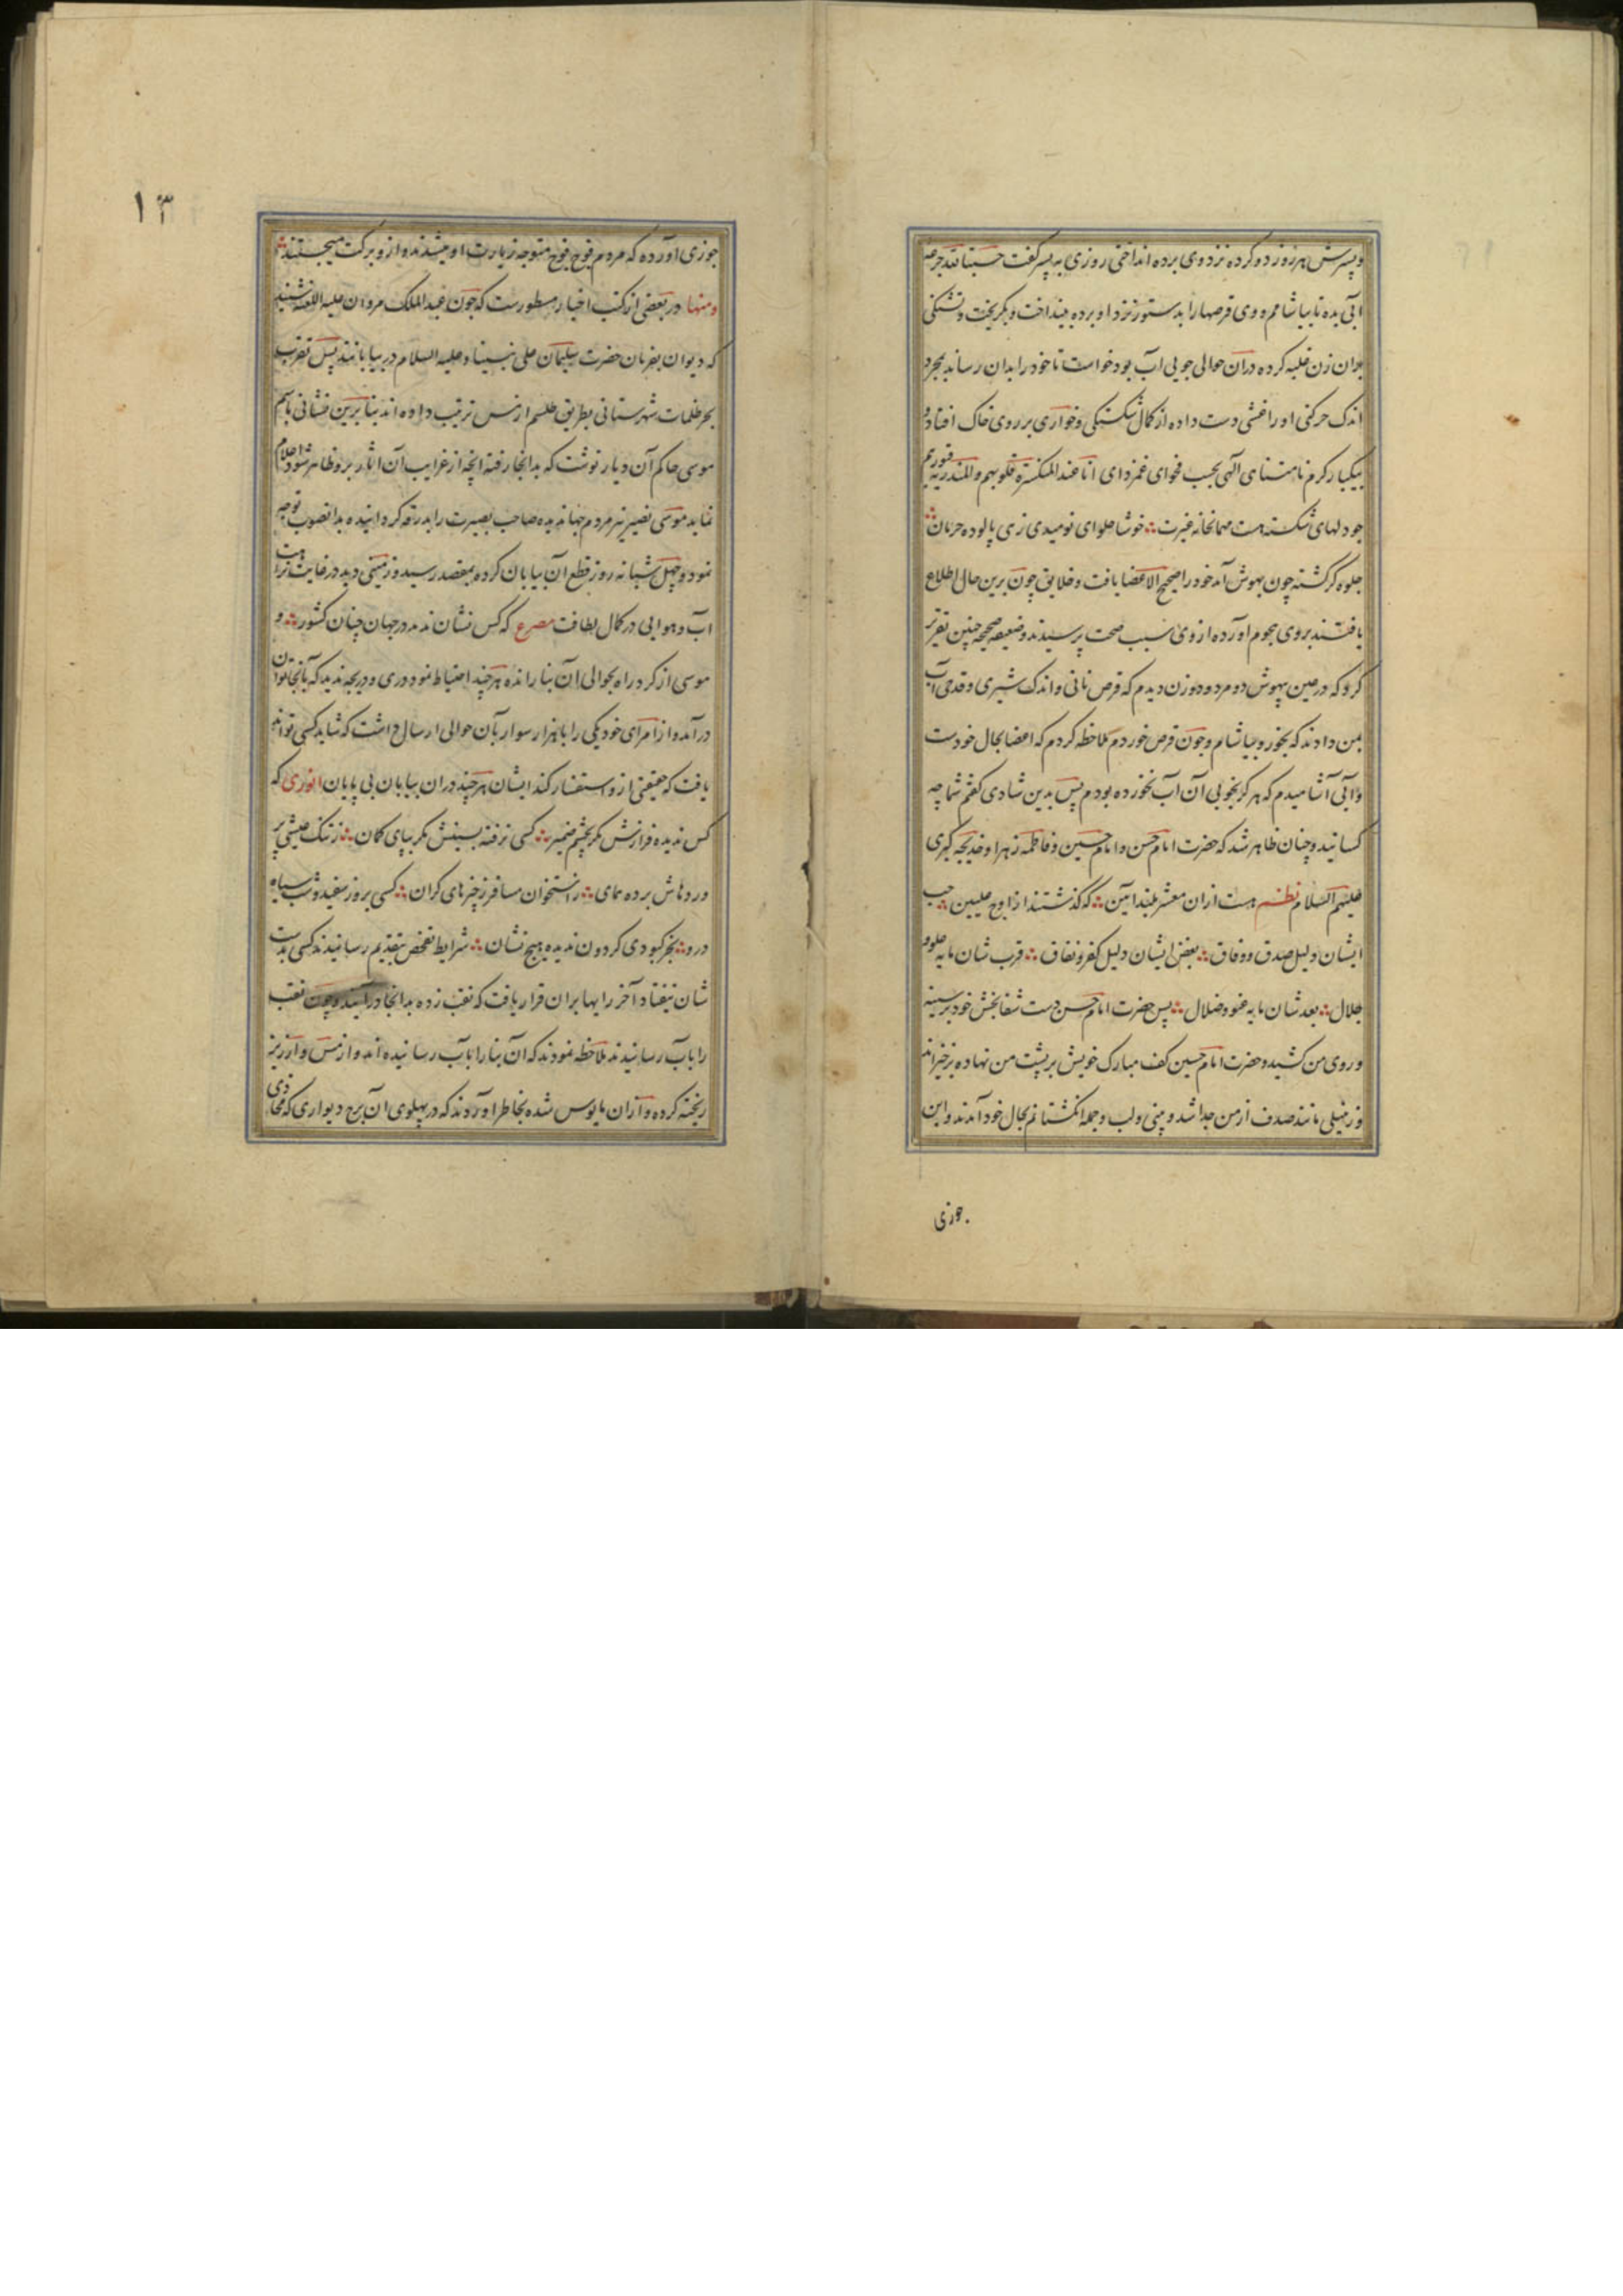 و پسرش هر روز دو کرده نزد وی برده انداختی روزی به پسر گفت حسبنا لله جرعه
آبی بده تا بیاشامم و وی قرصها را بدستور نزد او برده بینداخت و بگریخت و تشنگی
بران زن غلبه کرده دران حوالی جویی آب بود خواست تا خود را بدان رساند بمجرد
اندک حرکتی او را غشی دست داده از کمال شکستگی و خواری بر روی خاک افتاد و
بیکبار کرم نامتناهی الهی بحسب فحوای غمزدای انا عند المنکسرة قلوبهم و المندرسة قبورهم
چو دلهای شکسته هست مهمانخانه غیرت ؞ خوشا حلوای نومیدی زهی پالوده حرمان ؞
جلوه گر گشته چون بهوش آمد خود را صحیح الاعضا یافت و خلایق چون برین حال اطلاع
یافتند بروی هجوم آورده از وی سبب صحت پرسیدند و ضعیفه صحیحه چنین تقریر
کرد که در عین بیهوشی دو مرد و دو زن دیدم که قرص نانی و اندک شیری و قدحی آب
بمن دادند که بخور و بیاشام و چون قرص خوردم ملاحظه کردم که اعضا بحال خودست
و آبی آشامیدم که هرگز بخوبی آن آب نخورده بودم پس بدین شادی گفتم شما چه
کسانید و چنان ظاهر شد که حضرت امام حسن و امام حسین و فاطمه زهرا و خدیجه کبری
علیهم السلام نظم هست ازان معشر بلند آیین ؞ که گذشتند از اوج علیین ؞ حب
ایشان دلیل صدق و وفاق ؞ بغض ایشان دلیل کفر و نفاق ؞ قرب شان مایه علو و
جلال ؞ بعد شان مایه عتو و ضلال ؞ پس حضرت امام حسن دست شفابخش خود بر سینه
و روی من کشید و حضرت امام حسین کف مبارک خویش بر پشت من نهاده برخیزاند
و زنبیلی مانند صدف از من جدا شد و بینی و لب و جمله انگشتانم بحال خود آمدند و این
جوزی
۱۳
جوزی آورده که مردم فوج فوج متوجه زیارت او میشدند و ازو برکت میجستند ؞
و منها در بعضی از کتب اخبار مسطورست که چون عبد الملک مروان علیه اللعنه شنید
که دیوان بفرمان حضرت سلیمان علی نبینا و علیه السلام در بیابانند پس تقرب
بحر ظلمات شهرستانی بطریق طلسم از مس ترتیب داده اند بنا برین نشانی باسم
موسی حاکم آن دیار نوشت که بدانجا رفته آنچه از غرایب آن آثار برو ظاهر شود اعلام
نماید موسی نصیر نیز مردم جهاندیده صاحب بصیرت را بدرقه گردانیده بدانصوب توجه
نمود و چهل شبانه روز قطع آن بیابان کرده بمقصد رسید و زمینی دید در غایت نزاهت
آب و هوایی در کمال لطافت مصرع که کس نشان ندهد در جهان چنان کشور ؞ و
موسی از گرد راه بحوالی آن بنا رانده هرچند احتیاط نمود دری و دریچه ندید که بآنجا توان
درآمد و از امرای خود یکی را با هزار سوار بآن حوالی ارسال داشت که شاید کسی تواند
یافت که حقیقتی ازو استفسار کند ایشان هرچند دران بیابان بی پایان انوری که
کس ندیده فرازش مگر بچشم ضمیر ؞ کسی نرفته نشیبش مگر بپای گمان ؞ ز تنگ عیشی بر
ورد هاش برده همای ؞ ز استخوان مسافر ذخیرهای گران ؞ کسی بروز سفید و شب سیاه
درو ؞ بجز کبودی گردون ندیده هیچ نشان ؞ شرایط تفحص بتقدیم رسانیدند کسی بدست
شان نیفتاد آخر رایها بران قرار یافت که نقب زده بدانجا درآیند و چون نقب
را بآب رسانیدند ملاحظه نمودند که آن بنا را بآب رسانیده اند و از مس و ارزیز
ریخته کرده و ازان مایوس شده بخاطر آوردند که در پهلوی آن برج دیواری که محاذی